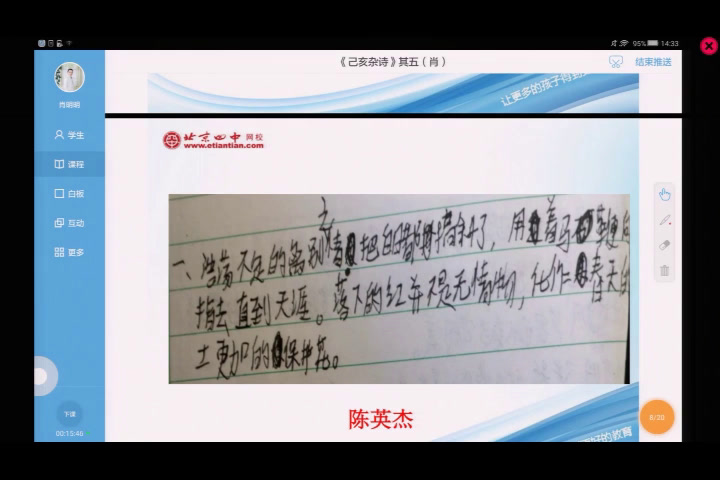 95%
14:33
《己亥杂诗》其五（肖）
结束推送
让更多的孩子得到
肖明明
学生
课程
白板
互动
更多
北京四中 网校
www.etiantian.com
一、浩荡不定的离别之情把白 都 了，用着马 向
指去直到天涯。落下的红并不是无情物，化作春天的
土更加的保护花。
陈英杰
好的教育
8/20
下课
00:15:46